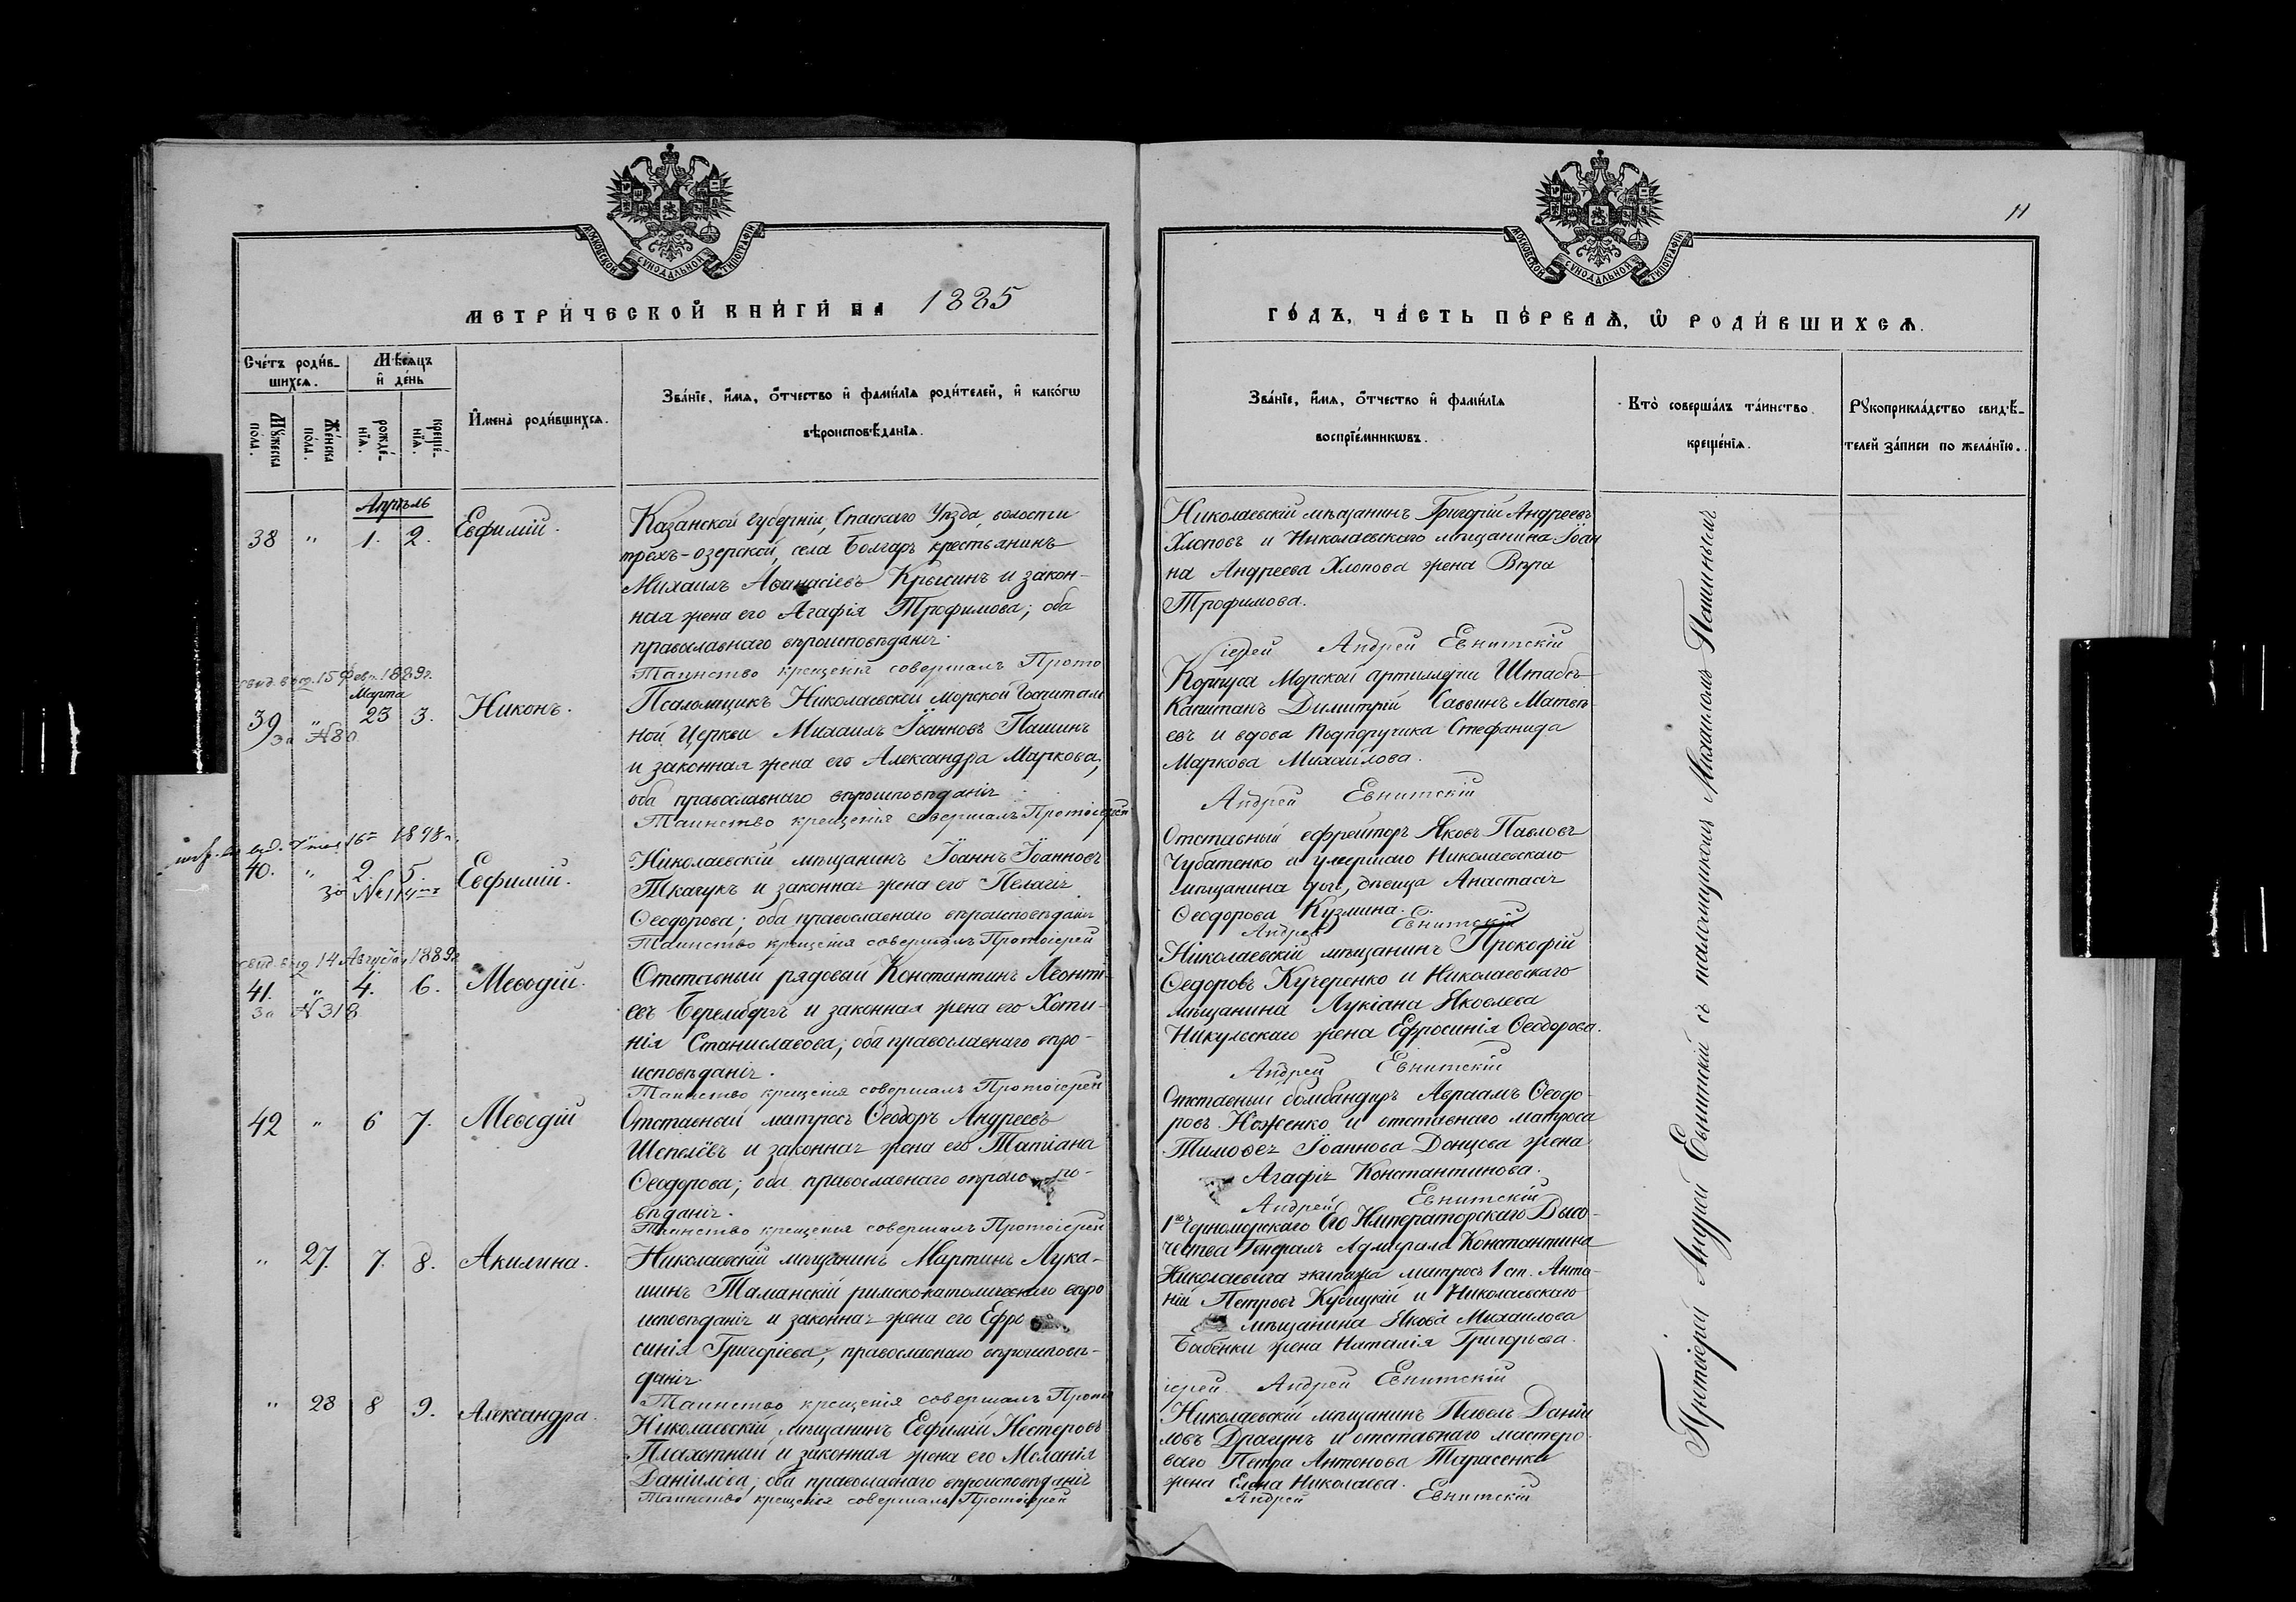 11
МОСКОВСКОЙ СУНОДАЛЬНОЙ ТИПОГРАФІИ
МЕТРИ́ЧЕСКОЙ КНИ́ГИ НА 1885
Сче́тъ роди́в-
шихсѧ.
Мѣ́сѧцъ
и҆ де́нь
Мꙋ́жеска
по́ла.
Же́нска
по́ла.
рожде́-
нїѧ.
креще́-
нїѧ.
И҆мена̀ роди́вшихсѧ.
Зва́нїе, и҆́мѧ, ѻ҆́тчество и҆ фами́лїѧ роди́телей, и҆ како́гѡ
вѣроисповѣ́данїѧ.
Апрѣль
38 " 1. 2. Евфимій.
Казанской губерніи, Спаскаго Уѣзда, волости
трехъ-озерской, села Болгаръ крестьянинъ
Михаилъ Аѳанасіевъ Крысинъ и закон-
ная жена его Агафія Трофимова; оба
православнаго вѣроисповѣданія.
Таинство крещенія совершалъ Прото
свид. выд. 15 Февр. 1889г.
Марта
39 " 23 3. Никонъ.
За №80
Псаломщикъ Николаевской морской Госпиталь
ной Церкви Михаилъ Іоанновъ Пашинъ
и законная жена его Александра Маркова,
оба православнаго вѣроисповѣданія
Таинство крещенія совершалъ Протоіерей
выд. 16го 1898г.
40. " 2. 5. Евфимій.
За №
Николаевскій мѣщанинъ Іоаннъ Іоанновъ
Ткачукъ и законная жена его Пелагія
Ѳеодорова; оба православнаго вѣроисповѣданія
Таинство крещенія совершалъ Протоіерей
свид. выд 14 Августа 1889г
41. " 4. 6. Меѳодій.
За №318
Отставный рядовый Константинъ Леонті-
евъ и законная жена его Хоти-
нія Станиславова; оба православнаго вѣро-
исповѣданія.
Таинство крещенія совершалъ Протоіерей
42 " 6 7. Меѳодій
Отставный матросъ Ѳеодоръ Андреевъ
Шепелёвъ и законная жена его Татіана
Ѳеодорова; оба православнаго вѣроиспо-
вѣданія.
Таинство крещенія совершалъ Протоіерей
" 27. 7. 8. Акилина.
Николаевскій мѣщанинъ Мартинъ Лука-
шинъ Таманскій римско-католическаго вѣро
исповѣданія и законная жена его Ефро
синія Григоріева, православнаго вѣроисповѣ-
данія
Таинство крещенія совершалъ Прото
" 28 8 9. Александра.
Николаевскій мѣщанинъ Евфимій Нестеровъ
Плахотный и законная жена его Меланія
Даніилова; оба православнаго вѣроисповѣданія
Таинство крещенія совершалъ Протоіерей
МОСКОВСКОЙ СУНОДАЛЬНОЙ ТИПОГРАФІИ
ГО́ДЪ, ЧА́СТЬ ПЕ́РВАѦ, Ѡ҆ РОДИ́ВШИХСѦ.
Зва́нїе, и҆́мѧ, ѻ҆́тчество и҆ фами́лїѧ
воспрїе́мникѡвъ.
Кто̀ соверша́лъ та́инство
креще́нїѧ.
Рꙋкоприкла́дство свидѣ́-
телей за́писи по жела́нїю.
Николаевскій мѣщанинъ Григорій Андреевъ
Хлоповъ и Николаевскаго мѣщанина Іоан
на Андреева Хлопова жена Вѣра
Трофимова.
іерей Андрей Евнитскій
Корпуса Морской артиллеріи Штабсъ-
Капитанъ Димитрій Саввинъ Матвѣ-
евъ и вдова Подпоручика Стефанида
Маркова Михайлова.
Андрей Евнитскій
Отставный ефрейторъ Яковъ Павловъ
Чубатенко и умершаго Николаевскаго
мѣщанина дочь, дѣвица Анастасія
Ѳеодорова Кузмина.
Андрей Евнитскій
Николаевскій мѣщанинъ Прокофій
Ѳедоровъ Кучеренко и Николаевскаго
мѣщанина Лукіана Яковлева
Никульскаго жена Ефросинія Ѳеодорова.
Андрей Евнитскій
Отставный бомбандиръ Авраамъ Ѳеодо-
ровъ Ноженко и отставнаго матроса
Тимоѳея Іоаннова Донцова жена
Агафія Константинова.
Андрей Евнитскій
1го Черноморскаго Его Императорскаго Высо-
чества Генералъ Адмирала Константина
Николаевича экипажа матросъ 1 ст. Анто-
ній Петровъ Кубицкій и Николаевскаго
мѣщанина Якова Михаилова
Бабенки жена Наталія Григорьева.
іерей Андрей Евнитскій
Николаевскій мѣщанинъ Павелъ Даніи
ловъ Драгунъ и отставнаго мастеро-
ваго Петра Антонова Тарасенка
жена Елена Николаева.
Андрей Евнитскій
Протоіерей Андрей Евнитскій съ псаломщикомъ Михаиломъ Пашинымъ